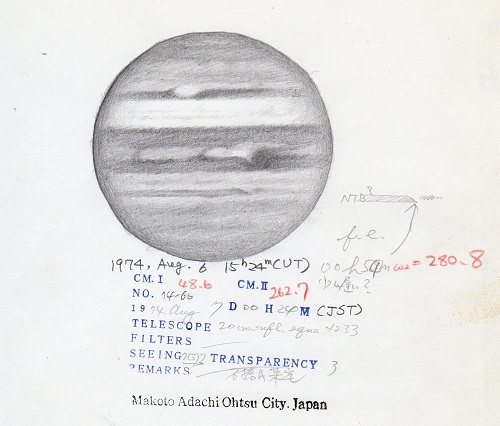 NTB
f.e.
1974, Aug. 6 15h 24m (UT)
00h 54m ω2 = 280.8
CM. I 48.6 CM. II 262.7
NO. 74-66
1974 Aug 7 D 00 H 24 M (JST)
TELESCOPE 20cm refl. equa ×233
FILTERS
SEEING TRANSPARENCY 3
REMARKS
Makoto Adachi Ohtsu City. Japan